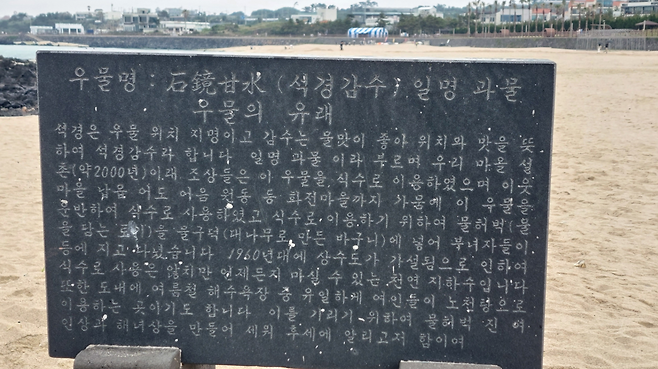 우물명 : 石鏡甘水 (석경감수) 일명 과물
우물의 유래
석경은 우물 위치 지명이고 감수는 물맛이 좋아 위치와 맛을 뜻
하여 석경감수라 합니다 일명 과물 이라 부르며 우리 마을 설
촌(약2000년)이래 조상들은 이 우물을 식수로 이용하였으며 이웃
마을 납읍 어도 어음 원동 등 화전마을까지 가뭄에 이 우물을
운반하여 식수로 사용하였고 식수로 이용하기 위하여 물허벅(물
을 담는 도기)을 물구덕(대나무로 만든 바구니)에 넣어 부녀자들이
등에 지고 다녔습니다 1960년대에 상수도가 가설됨으로 인하여
식수로 사용은 않치만 언제든지 마실 수 있는 천연 지하수입니다
또한 도내에 여름철 해수욕장 중 유일하게 여인들이 노천탕으로
이용하는 곳이기도 합니다 이를 기리기 위하여 물허벅 진 여
인상과 해녀상을 만들어 세워 후세에 알리고저 함이여